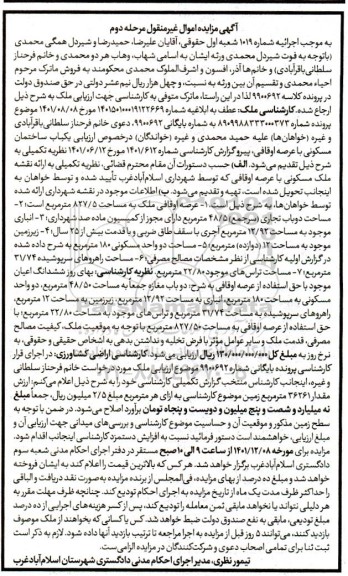 آگهی مزایده اموال غیرمنقول مرحله دوم
به موجب اجرائیه شماره ۱۰۱۹ شعبه اول حقوقی، آقایان علیرضا، حمیدرضا و شیردل همگی محمدی
(باتوجه به فوت شیردل محمدی ورثه ایشان به اسامی شهاب، وهاب هر دو محمدی و خانم فرحناز
سلطانی باقرآبادی) و خانم‌ها آذر، افسون و اشرف‌الملوک محمدی محکومند به فروش ماترک مرحوم
احیاء محمدی و تقسیم آن بین ورثه به نسبت، و چهل هزار ریال نیم عشر دولتی در حق صندوق دولت
در پرونده کلاسه ۹۹۰۰۶۹۲ لذا در این راستا، ماترک متوفی به کارشناسی جهت ارزیابی ملک به شرح ذیل
ارجاع شده. کارشناسی ملک: عطف به ابلاغیه شماره
پرونده شماره به شماره بایگانی ۹۹۰۰۶۹۲، دعوی خانم فرحناز سلطانی باقرآبادی
و غیره (خواهان‌ها) علیه حمید محمدی و غیره (خواندگان) درخصوص ارزیابی یکباب ساختمان
مسکونی با عرصه اوقافی، پیرو گزارش کارشناسی شماره ۱۴۰۱/۶۱۲ مورخ ۱۴۰۱/۰۶/۱۲ نظریه تکمیلی به
شرح ذیل تقدیم می‌شود. الف) حسب دستورات آن مقام محترم قضائی، نظریه تکمیلی به ارائه نقشه
ملک مسکونی با عرصه اوقافی که توسط شهرداری اسلام‌آبادغرب تأیید شده و توسط خواهان به
اینجانب تحویل شده است، تهیه و تقدیم می‌شود. ب) اطلاعات موجود در نقشه شهرداری ارائه شده
توسط خواهان‌ها، به شرح ذیل است: ۱- عرصه اوقافی ملک به مساحت ۸۲۷/۵ مترمربع است؛ ۲-
مساحت دوباب تجاری در مجموع ۴۸/۵ مترمربع دارای مجوز از کمیسیون ماده صد شهرداری؛ ۳- انباری
موجود به مساحت ۱۲/۹۲ مترمربع آجری با سقف طاق ضربی و با قدمت بیش از ۲۵ سال؛ ۴- زیرزمین
موجود به مساحت ۱۲ (دوازده) مترمربع؛ ۵- مساحت دو واحد مسکونی ۱۸۰ مترمربع به شرح داده شده
در گزارش اولیه کارشناسی از نظر مشخصات مصالح مصرفی؛ ۶- مساحت راهروهای سرپوشیده ۳۱/۷۴
مترمربع؛ ۷- مساحت تراس‌های موجود ۲۲/۸۰ مترمربع. نظریه کارشناسی: بهای روز ششدانگ اعیان
موجود با حق استفاده از عرصه اوقافی به شرح: دو باب مغازه جمعاً به مساحت ۴۸/۵۰ مترمربع، دو واحد
مسکونی به مساحت ۱۸۰ مترمربع، انباری به مساحت ۱۲/۹۲ مترمربع، زیرزمین به مساحت ۱۲ مترمربع،
راهروهای سرپوشیده به مساحت ۳۱/۷۴ مترمربع و تراس‌های موجود به مساحت ۲۲/۸۰ مترمربع؛ با
حق استفاده از عرصه اوقافی به مساحت ۸۲۷/۵۰ مترمربع با توجه به موقعیت ملک، کیفیت مصالح
مصرفی، قدمت ملک و سایر عوامل مؤثر با فرض تخلیه و نداشتن بدهی به اشخاص حقیقی و حقوقی، به
نرخ روز به مبلغ کل ۱۳۰/۰۰۰/۰۰۰/۰۰۰ ریال ارزیابی می‌شود. کارشناسی اراضی کشاورزی: در اجرای قرار
کارشناسی پرونده بایگانی شماره ۹۹۰۰۶۹۲ موضوع ارزیابی ملک مورد درخواست خانم فرحناز سلطانی
و غیره، اینجانب کارشناس منتخب گزارش تکمیلی کارشناسی خود را به شرح ذیل اعلام می‌کنم: ارزش
مقدار ۳۶۲۶۱ مترمربع زمین موضوع کارشناسی به ازای هر مترمربع مبلغ ۲/۵ میلیون ریال، جمعاً مبلغ
نه میلیارد و شصت و پنج میلیون و دویست و پنجاه تومان برآورد اصلاح می‌شود. در ضمن با توجه به
سطح زمین مذکور و موقعیت آن و حساسیت موضوع کارشناسی و بررسی‌های میدانی جهت ارزیابی آن و
مبلغ ارزیابی، خواهشمند است دستور فرمائید نسبت به افزایش دستمزد کارشناسی اینجانب اقدام شود.
مزایده برای مورخه ۱۴۰۱/۱۲/۰۸ از ساعت ۹ الی ۱۰ صبح مستقر در دفتر اجرای احکام مدنی شعبه سوم
دادگستری اسلام‌آبادغرب برگزار خواهد شد. هر کس که بالاترین قیمت را اعلام کند به ایشان فروخته
خواهد شد و مبلغ ده درصد از بهای مزایده، فی‌المجلس از برنده مزایده به صورت نقد دریافت و الباقی
را حداکثر ظرف مدت یک ماه از تاریخ مزایده به اجرای احکام تودیع کند. چنانچه ظرف مهلت مقرر به
هر دلیلی نتواند یا نخواهد مابقی ثمن معامله را تودیع کند، پس از کسر هزینه‌های اجرایی از ده درصد
مبلغ تودیعی، مابقی به نفع صندوق دولت ضبط خواهد شد. کس یا کسانی که بخواهند از ملک موصوف
بازدید کنند، می‌توانند ۵ روز قبل از مزایده به اجرا مراجعه تا ترتیب بازدید آنها داده شود. لازم به ذکر است
ثبت ثنا برای تمامی اصحاب دعوی و شرکت‌کنندگان در مزایده الزامی‌ست.
تیمور نظری، مدیر اجرای احکام مدنی دادگستری شهرستان اسلام‌آبادغرب